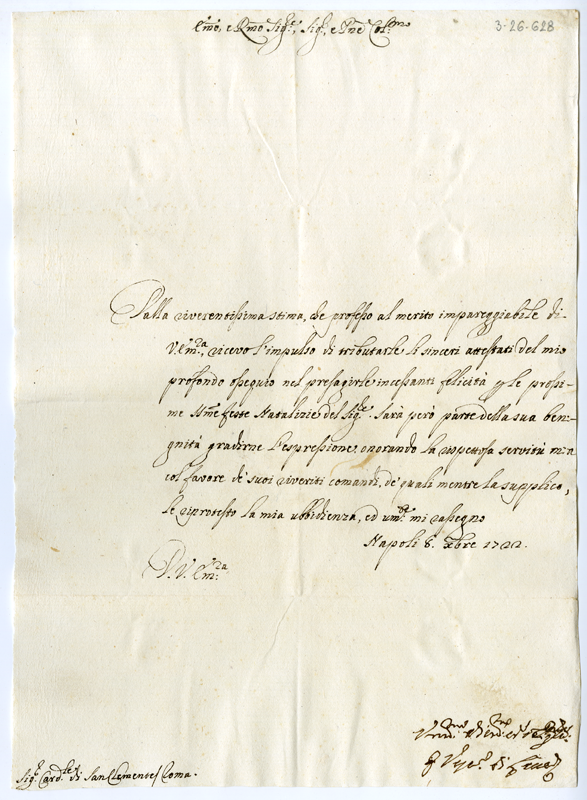 Emo, e Rmo Sigre, Sigr, e Pne Colmo
3-26-628
Dalla riverentissima stima, che professo al merito impareggiabile di
V. Emza, ricevo l'impulso di tributarle li sinceri attestati del mio
profondo ossequio nel presagirle incessanti felicità p le prossi-
me SSme feste Natalizie del Sigre. Sarà però parte della sua beni-
gnità gradirne l'espressione, onorando la rispettosa servitù mia
col favore de' suoi riveriti comandi, de' quali mentre la supplico,
le riprotesto la mia ubbidienza, ed umte mi rassegno
Napoli 8. Xbre 1722.
D. V. Emza
Sigr Cardle di San Clemente / Roma.